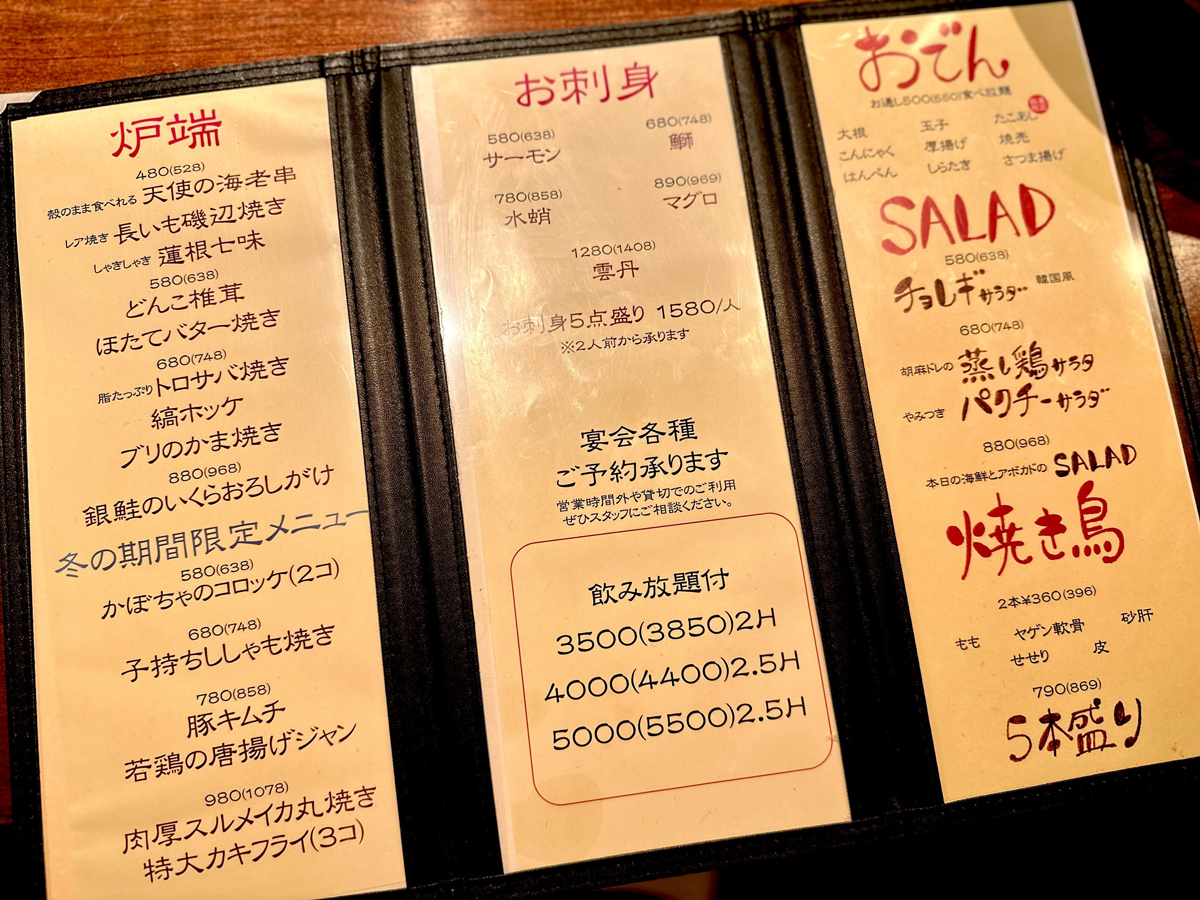 炉端
480(528)
殻のまま食べれる 天使の海老串
レア焼き 長いも磯辺焼き
しゃきしゃき 蓮根七味
580(638)
どんこ椎茸
ほたてバター焼き
680(748)
脂たっぷり トロサバ焼き
縞ホッケ
ブリのかま焼き
880(968)
銀鮭のいくらおろしがけ
冬の期間限定メニュー
580(638)
かぼちゃのコロッケ(2コ)
680(748)
子持ちししゃも焼き
780(858)
豚キムチ
若鶏の唐揚げジャン
980(1078)
肉厚スルメイカ丸焼き
特大カキフライ(3コ)
お刺身
580(638) 680(748)
サーモン 鰤
780(858) 890(969)
水蛸 マグロ
1280(1408)
雲丹
お刺身5点盛り 1580/人
※2人前から承ります
宴会各種
ご予約承ります
営業時間外や貸切でのご利用
ぜひスタッフにご相談ください。
飲み放題付
3500(3850)2H
4000(4400)2.5H
5000(5500)2.5H
おでん
お通し500(550)食べ放題
大根 玉子 たこあし
こんにゃく 厚揚げ 焼売
はんぺん しらたき さつま揚げ
SALAD
580(638)
チョレギサラダ 韓国風
680(748)
胡麻ドレの 蒸し鶏サラダ
やみつき パクチーサラダ
880(968)
本日の海鮮とアボカドの SALAD
焼き鳥
2本¥360(396)
もも ヤゲン軟骨 砂肝
せせり 皮
790(869)
5本盛り